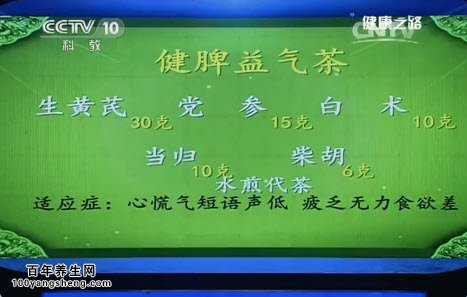 CCTV 10
科教
健康之路
CNTV
健脾益气茶
生黄芪 30克 党参 15克 白术 10克
当归 10克 柴胡 6克
水煎代茶
适应症：心慌气短语声低 疲乏无力食欲差
百年养生网
100yangsheng.com